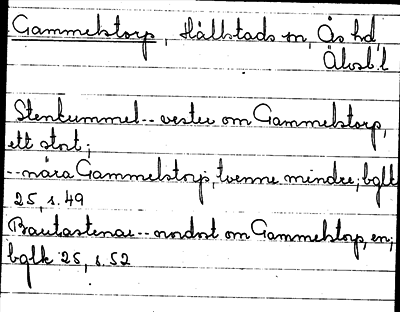 Gammelstorp, Hällstads sn, Ås hd,
Älvsb.l
Stenkummel -- vester om Gammelstorp,
ett stort;
-- nära Gammelstorp, tvenne mindre; bglk
25, s. 49
Bautastenar -- nordost om Gammelstorp, en;
bglk 25, s. 52